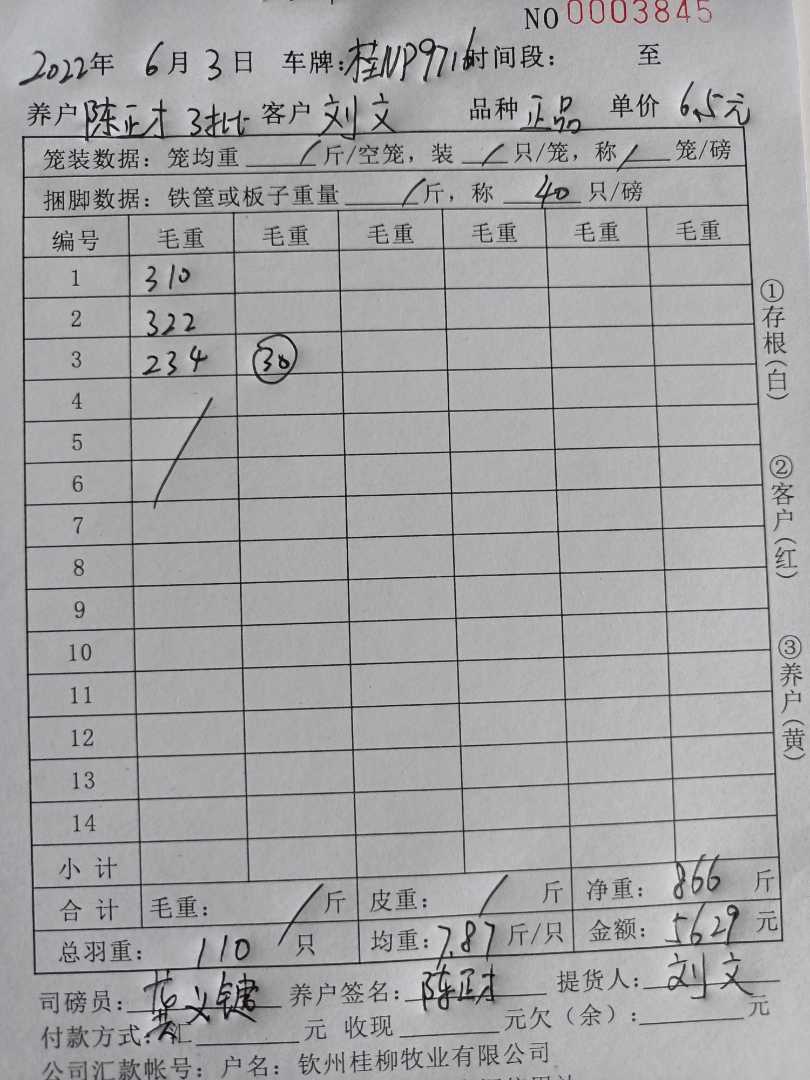 NO 0003845
2022年 6月 3日 车牌:桂NP9716 时间段: 至
养户 陈正才 3批 客户 刘文 品种 正品 单价 6.5元
笼装数据: 笼均重 / 斤/空笼, 装 / 只/笼, 称 / 笼/磅
捆脚数据: 铁筐或板子重量 / 斤, 称 40 只/磅
编号 毛重 毛重 毛重 毛重 毛重 毛重
1 310
2 322
3 234 30
4
5
6
7
8
9
10
11
12
13
14
小计
合计 毛重: / 斤 皮重: / 斤 净重: 866 斤
总羽重: 110 只 均重: 7.87 斤/只 金额: 5629 元
司磅员: 养户签名: 陈正才 提货人: 刘文
付款方式: 汇 元 收现 元欠(余): 元
公司汇款帐号: 户名: 钦州桂柳牧业有限公司
①存根(白)
②客户(红)
③养户(黄)